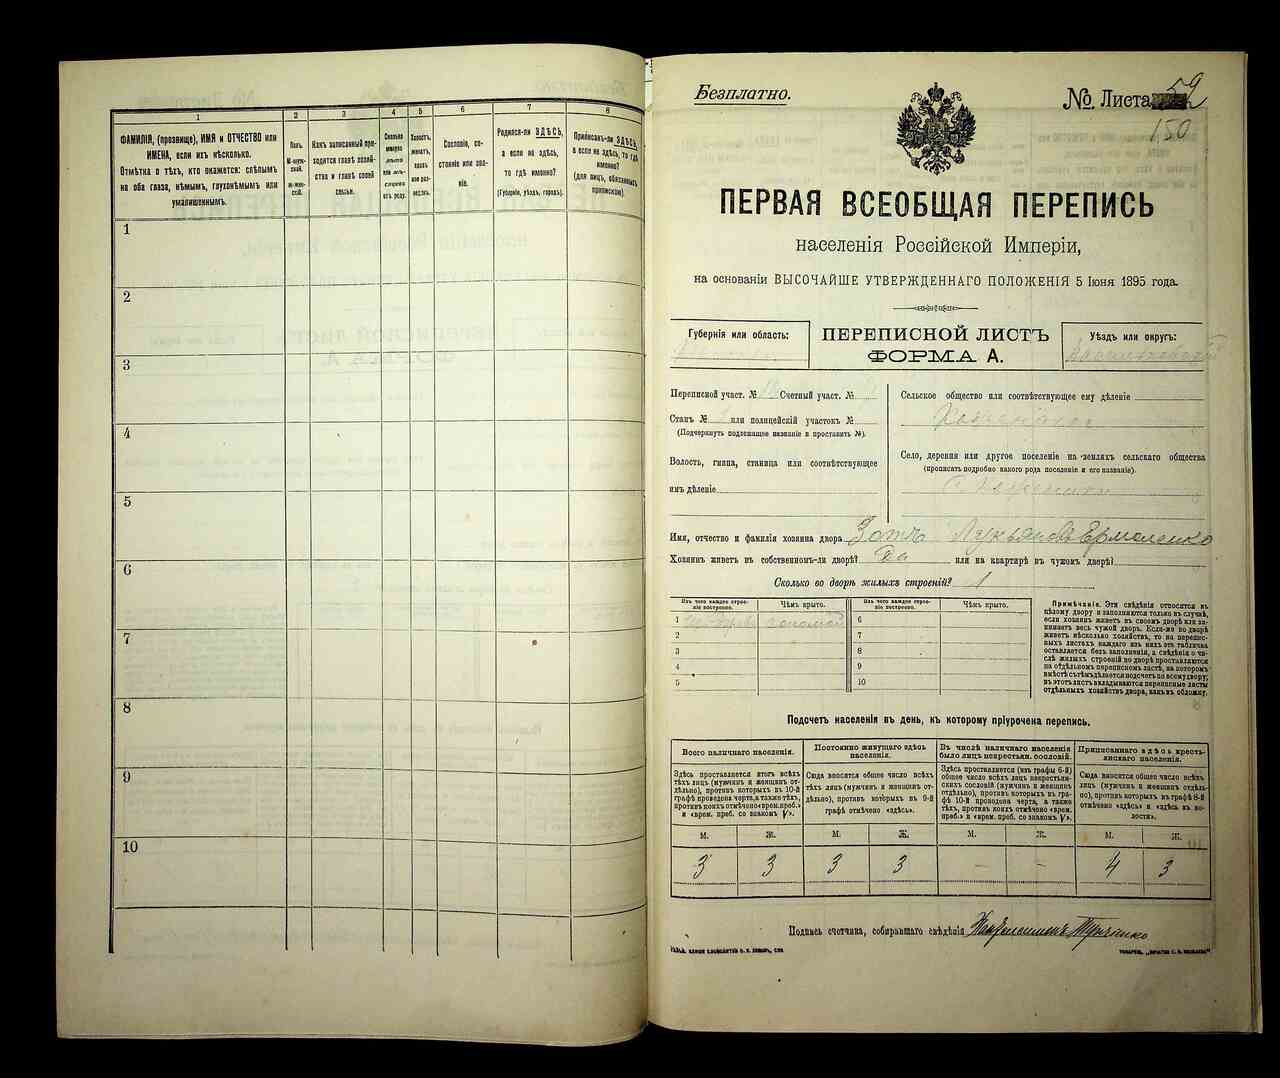 1
2
3
4
5
6
7
8
ФАМИЛІЯ, (прозвище), ИМЯ и ОТЧЕСТВО или
ИМЕНА, если ихъ нѣсколько.
Отмѣтка о тѣхъ, кто окажется: слѣпымъ
на оба глаза, нѣмымъ, глухонѣмымъ или
умалишеннымъ.
Полъ.
М-мужской.
Ж-женскій.
Какъ записанный при-
ходится главѣ хозяй-
ства и главѣ своей
семьи.
Сколько
минуло
лѣтъ
или мѣс.
отъ роду.
Холостъ,
женатъ,
вдовъ
или раз-
веденъ.
Сословіе, со-
стояніе или зва-
ніе.
Родился-ли ЗДѢСЬ,
а если не здѣсь,
то гдѣ именно?
(Губернія, уѣздъ, городъ).
Приписанъ-ли ЗДѢСЬ,
а если не здѣсь, то гдѣ
именно?
(для лицъ, обязанныхъ
припискою).
1
2
3
4
5
6
7
8
9
10
Безплатно.
№ Листа 52
150
ПЕРВАЯ ВСЕОБЩАЯ ПЕРЕПИСЬ
населенія Россійской Имперіи,
на основаніи ВЫСОЧАЙШЕ УТВЕРЖДЕННАГО ПОЛОЖЕНІЯ 5 Іюня 1895 года.
Губернія или область:
ПЕРЕПИСНОЙ ЛИСТЪ
ФОРМА А.
Уѣздъ или округъ:
Переписной участ. № Счетный участ. №
Станъ № или полицейскій участокъ №
(Подчеркнуть подлежащее названіе и проставить №).
Волость, гмина, станица или соотвѣтствующее
имъ дѣленіе
Сельское общество или соотвѣтствующее ему дѣленіе
Село, деревня или другое поселеніе на земляхъ сельскаго общества
(прописать подробно какого рода поселеніе и его названіе).
Имя, отчество и фамилія хозяина двора Зотъ Лукьяновъ Ермоленко
Хозяинъ живетъ въ собственномъ-ли дворѣ? Да или на квартирѣ въ чужомъ дворѣ?
Сколько во дворѣ жилыхъ строеній? 1
Изъ чего каждое строе-
ніе построено.
Чѣмъ крыто.
Изъ чего каждое строе-
ніе построено.
Чѣмъ крыто.
1 соломой 6
2 7
3 8
4 9
5 10
Примѣчаніе. Эти свѣдѣнія относятся къ
цѣлому двору и заполняются только въ случаѣ,
если хозяинъ живетъ въ своемъ дворѣ или за-
нимаетъ весь чужой дворъ. Если-же во дворѣ
живетъ нѣсколько хозяйствъ, то на перепис-
ныхъ листахъ каждаго изъ нихъ эта табличка
оставляется безъ заполненія, а свѣдѣнія о чи-
слѣ жилыхъ строеній во дворѣ проставляются
на отдѣльномъ переписномъ листѣ, на которомъ
вмѣстѣ съ тѣмъ дѣлается подсчетъ по всему двору;
въ этотъ листъ вкладываются переписные листы
отдѣльныхъ хозяйствъ двора, какъ въ обложку.
Подсчетъ населенія въ день, къ которому пріурочена перепись.
Всего наличнаго населенія.
Постоянно живущаго здѣсь
населенія.
Въ числѣ наличнаго населенія
было лицъ некрестьян. сословій.
Приписаннаго здѣсь кресть-
янскаго населенія.
Здѣсь проставляется итогъ всѣхъ
тѣхъ лицъ (мужчинъ и женщинъ от-
дѣльно), противъ которыхъ въ 10-й
графѣ проведена черта, а также тѣхъ,
противъ коихъ отмѣчено «врем. преб.»
и «врем. преб. со знакомъ V».
Сюда вносятся общее число всѣхъ
тѣхъ лицъ (мужчинъ и женщинъ от-
дѣльно), противъ которыхъ въ 9-й
графѣ отмѣчено «здѣсь».
Здѣсь проставляется (изъ графы 6-й)
общее число всѣхъ лицъ некрестьян-
скихъ сословій (мужчинъ и женщинъ
отдѣльно), противъ которыхъ въ гра-
фѣ 10-й проведена черта, а также
тѣхъ, противъ коихъ отмѣчено «врем.
преб.» и «врем. преб. со знакомъ V».
Сюда вносятся общее число всѣхъ
лицъ (мужчинъ и женщинъ отдѣль-
но), противъ которыхъ въ графѣ 8-й
отмѣчено «здѣсь» и «здѣсь въ во-
лости».
М. Ж. М. Ж. М. Ж. М. Ж.
3 3 3 3 - - 4 3
Подпись счетчика, собиравшаго свѣдѣнія